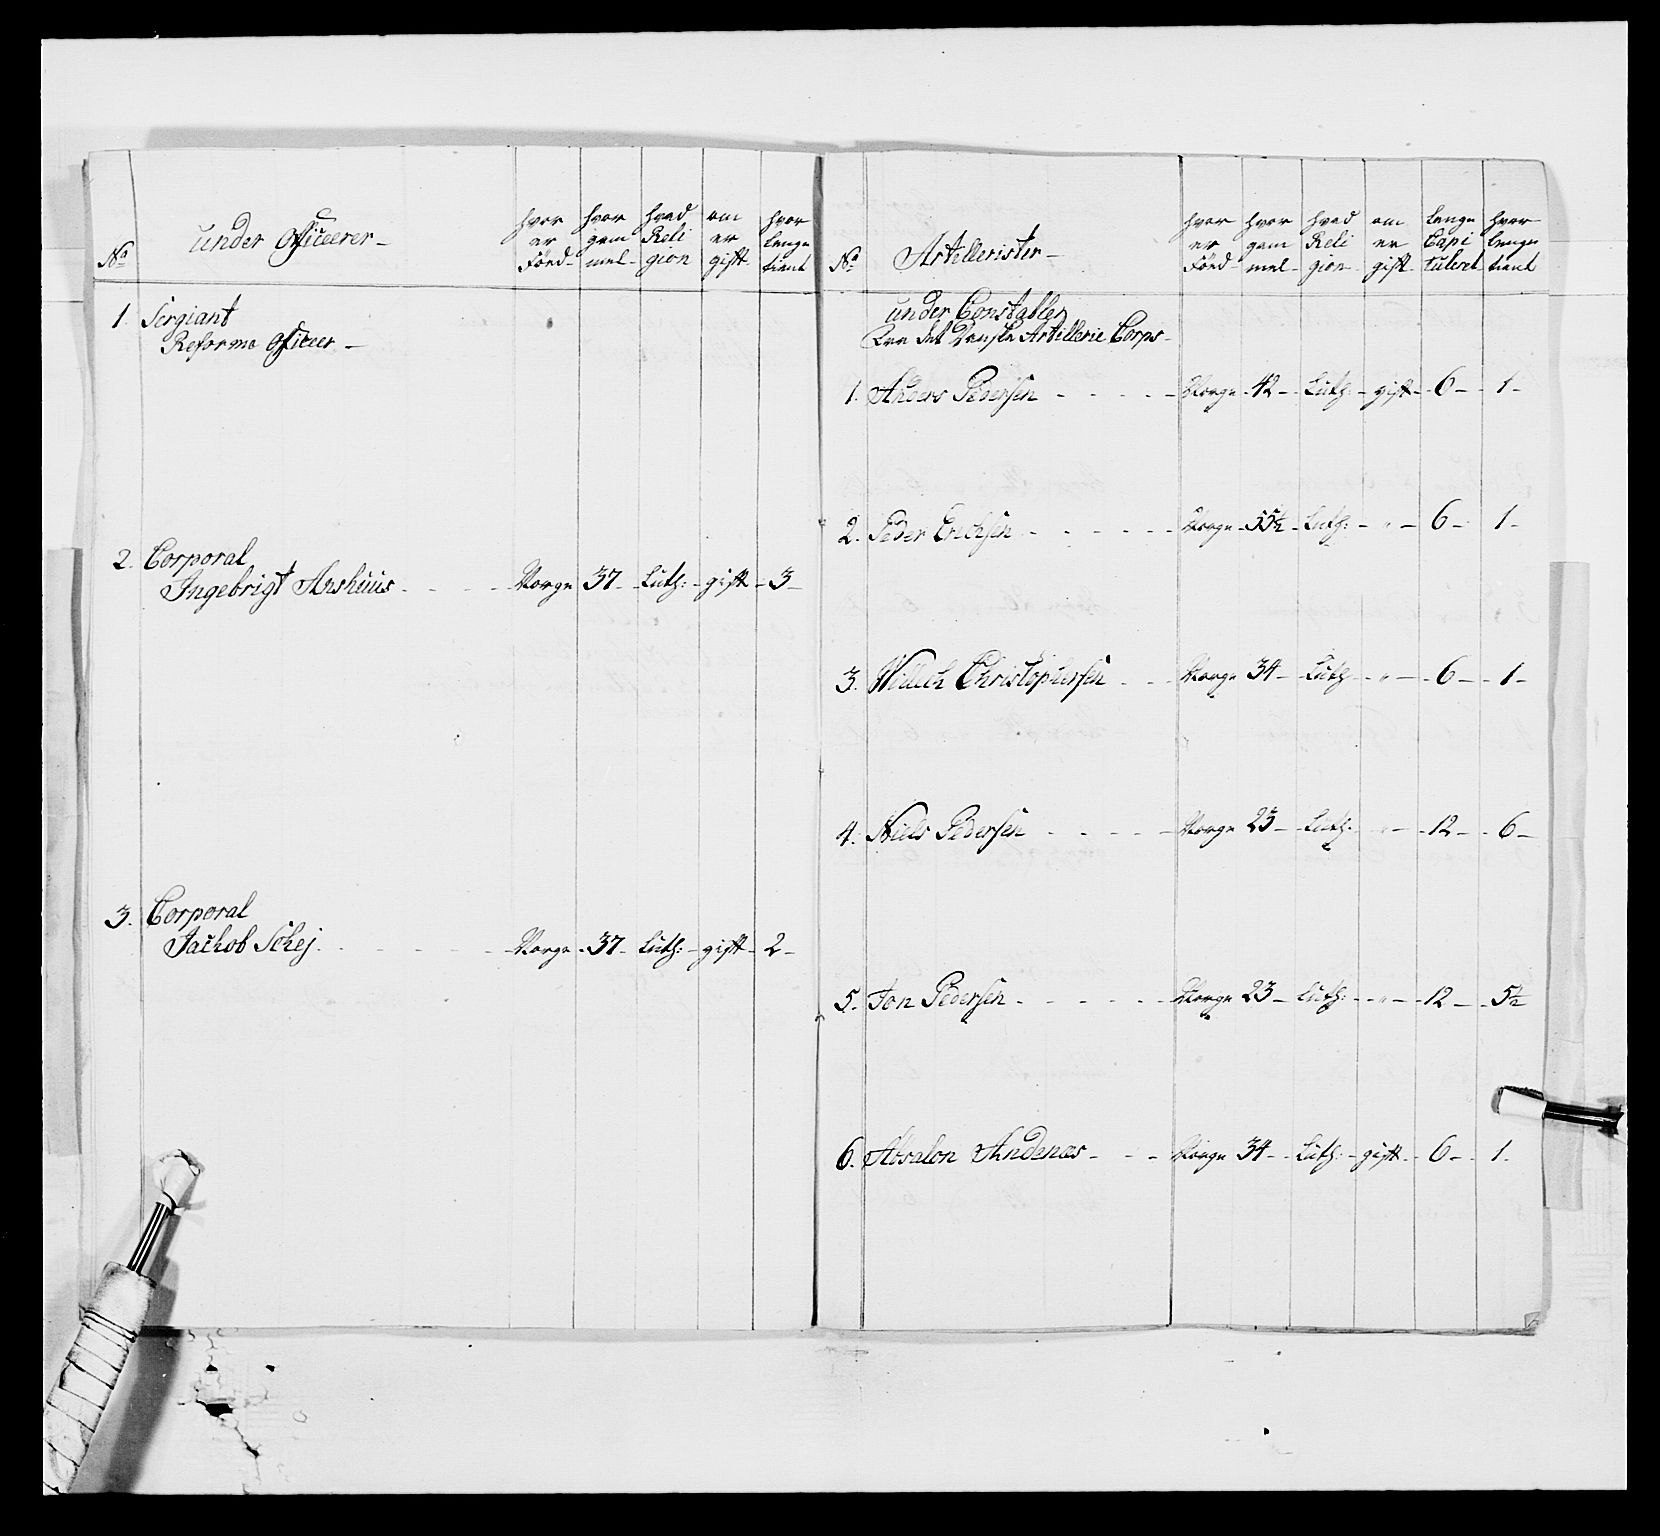 No
under Officeerer
hvor er Föed
hvor gam mel
hvad Reli gion
om er gift
hvor lenge tient
1. Sergiant
Reforme Officeer
2. Corporal
Ingebrigt Anshuus Norge 37 Luth: gift 3
3. Corporal
Jachob Schej Norge 37 Luth: gift 2
No
Artellerister
hvor er Föed
hvor gam mel
hvad Reli gion
om er gift
lenge Capi tuleret
hvor lenge tient
under Constabler
det Danske Artillerie Corps
1. Anders Pedersen Norge 42 Luth: gift 6 1
2. Peder Erichsen Norge 35½ Luth: " 6 1
3. Willech Christophersen Norge 34 Luth " 6 1
4. Niels Pedersen Norge 23 Luth: " 12 6
5. Jon Pedersen Norge 23 Luth: " 12 5½
6. Absalon Andenæs Norge 34 Luth: gift 6 1